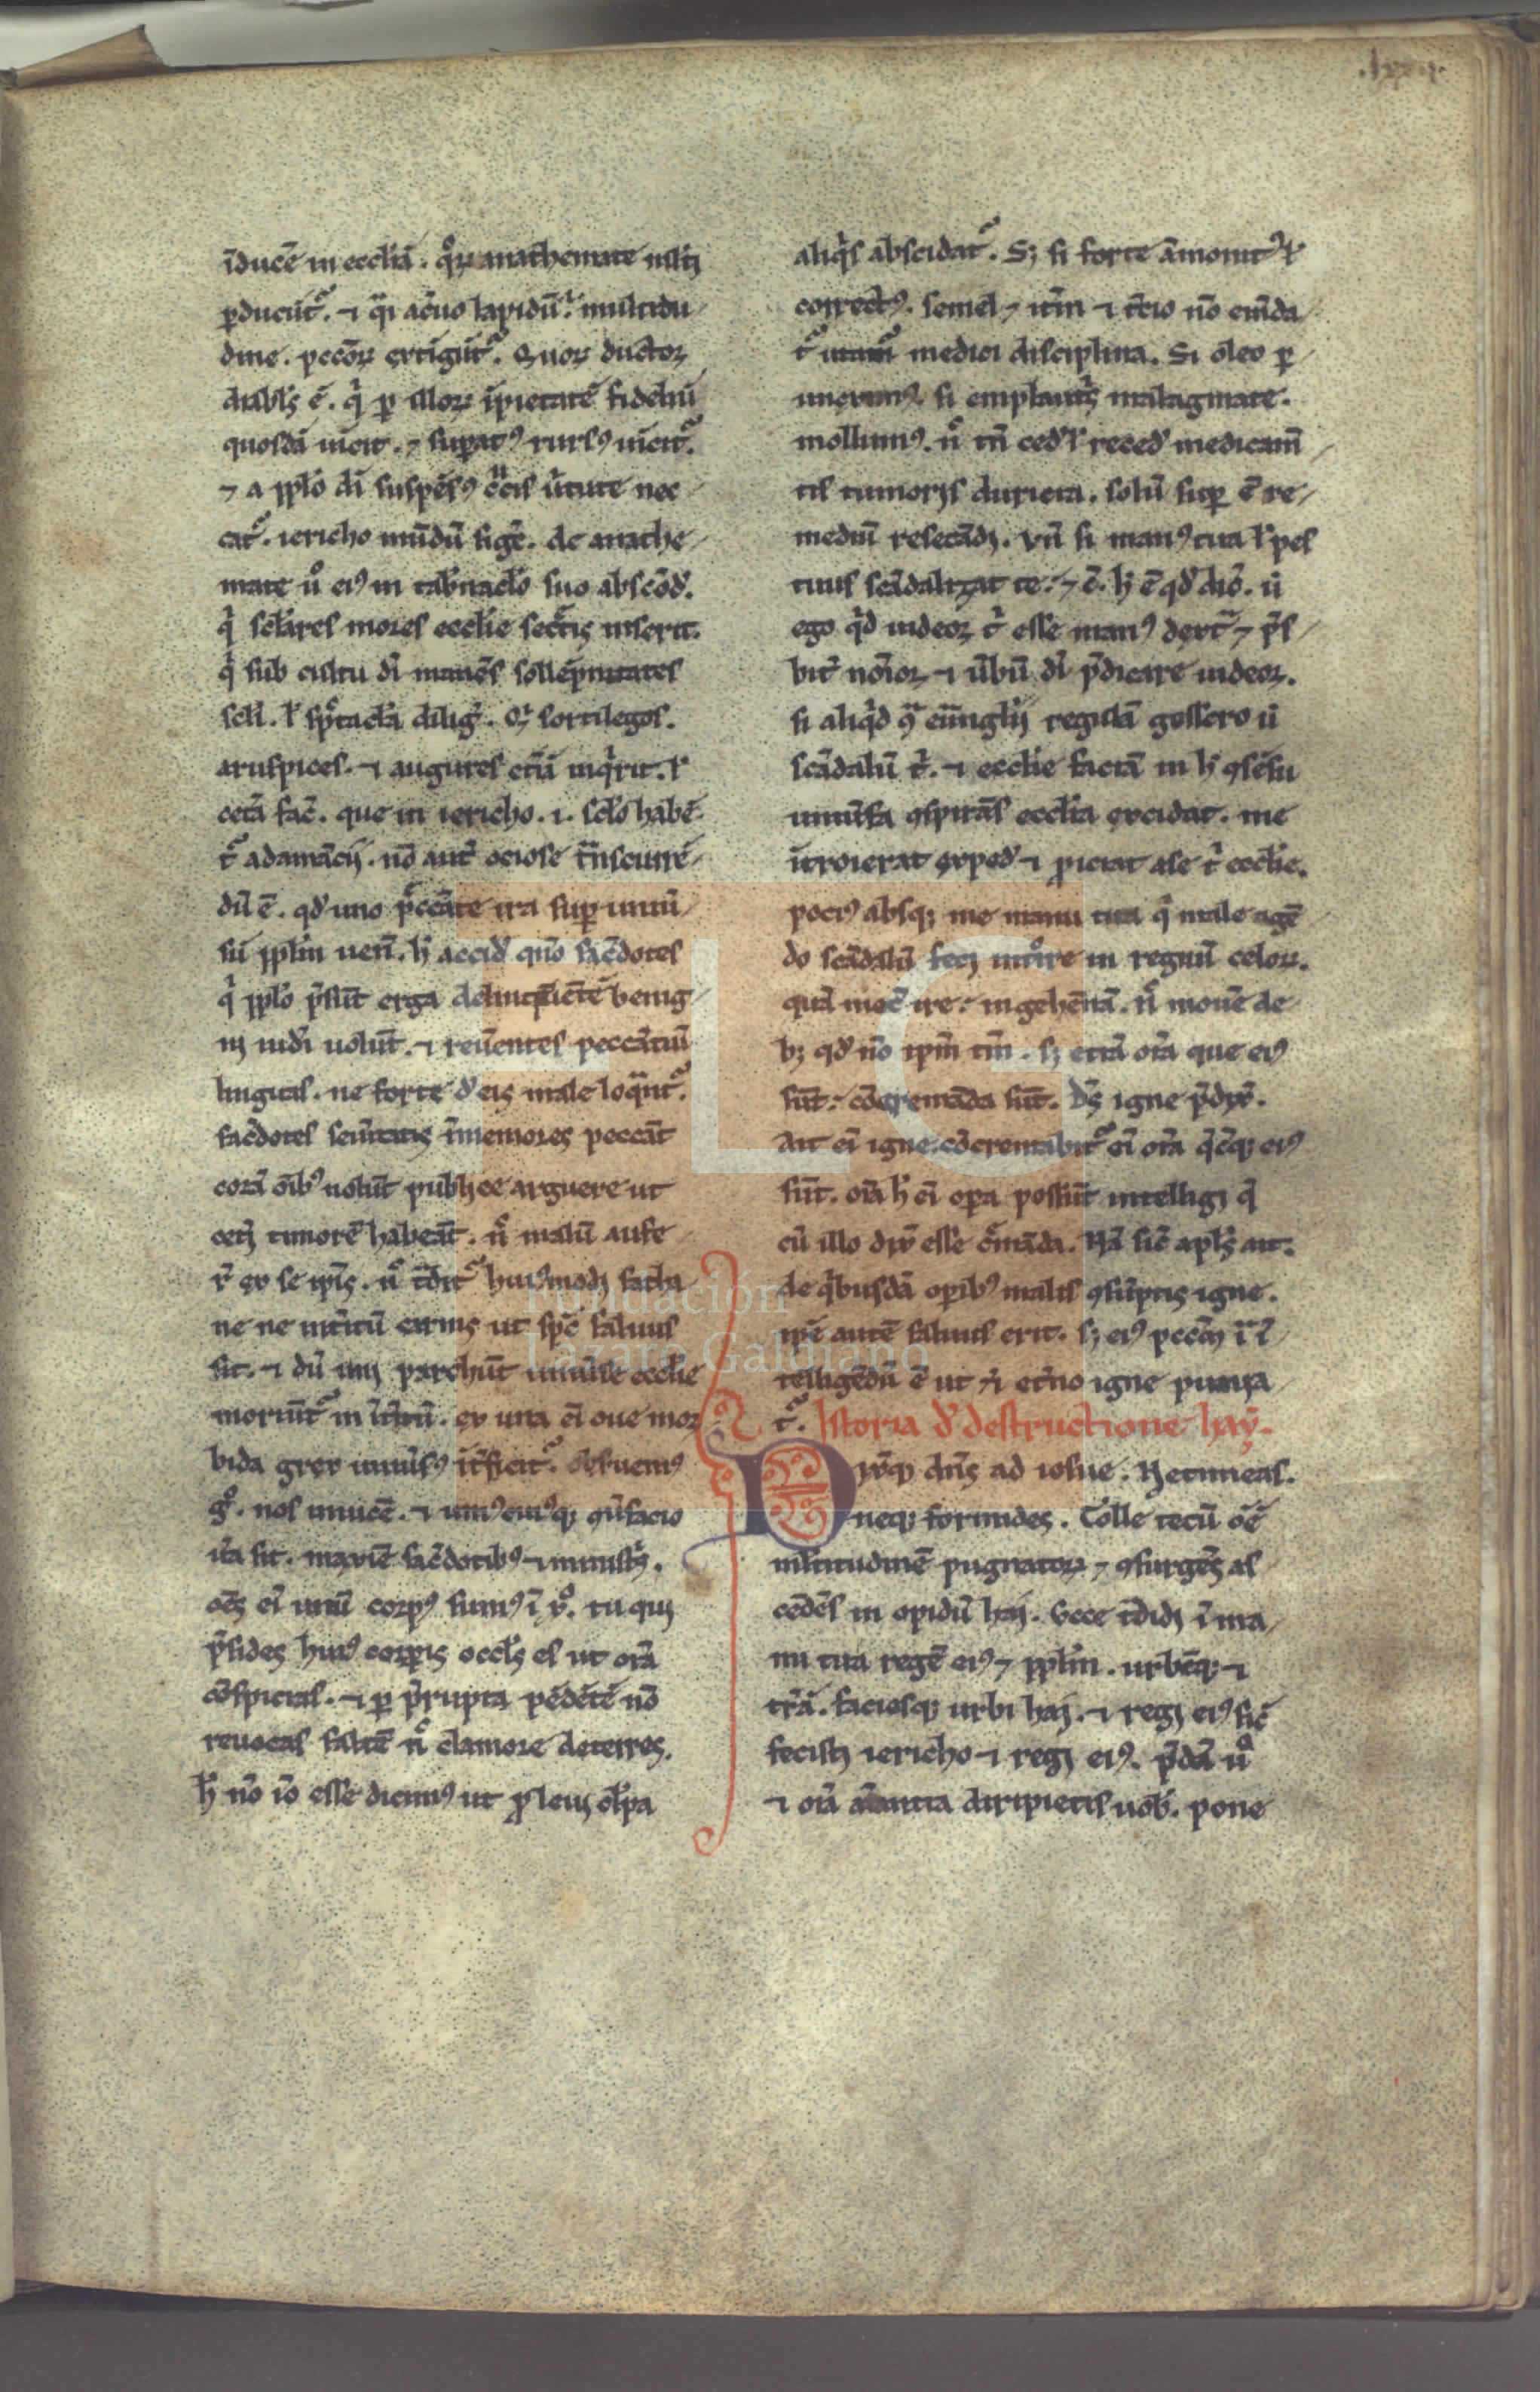 .lxxx.
īducē in ecclīā. qͦꝝ anathemate isl'ꝫ
ꝑducūt᷑. ⁊ qͣi ac̄uo lapidū. multitu
dine. pccōꝝ ertigūt᷑. Quoꝝ ductor
diabl's ē. qͥ ꝑ illoꝝ īpietatē fideliū
quosdā uicit. ⁊ suꝑatꝰ rursꝰ uīcit᷑.
⁊ a ppl'o dī suspēsꝰ c̄cis ūtute nec
cat᷑. iericho mūdū siḡt. de anathe
mate uͦ eiꝰ in tab̄nacl'o suo abscōd'.
qͥ sc'lares mores eccl'ie sectis inserit.
qͥ sub cultu dī manēs sollēpnitates
scl'i. l' spectacl'a diliḡ. Qͥ sortilegos.
aruspices. ⁊ augures etiā inqͥrit. l'
cetā fac̄. que in iericho. i. scl'o habē
t᷑ adamācij. nō aut̄ ociose t̄nscurrē
dū ē. qd' uno p̄ccāte ira suꝑ uniū
sū ppl'm uen̄. h' accid' qn̄o sac̄dotes
qͥ ppl'o p̄sūt erga delinquētē benig
ni uid'i uolūt. ⁊ reuēentes peccātiū
linguas. ne forte d' eis male loqͣnt᷑.
sac̄dotes seūitatis īmemores peccāt
corā oīb' nolūt publice arguere ut
cet'i timorē habeāt. n̄ malū aufe
r̄ ex se ipīs. n̄ t̄dit᷑ huiꝰmodi satha
ne ne int'itū carnis ut spc̄ saluus
sit. ⁊ dū uni parcūt uniūse eccl'ie
moriūt᷑ in it̄itū. ex una eī oue mor
bida grex uniūsꝰ īficit᷑. Obsuemꝰ
gͦ. nos inuicē. ⁊ uniꝰcuiꝰqꝫ ꝯūsacio
ita sit. maxīe sac̄dotibꝰ ⁊ ministͥs.
oēs eī unū corpꝰ sumꝰ ī xͦ. tu qui
p̄sides huiꝰ corꝑis occl's es ut oīa
cōspicias. ⁊ ꝑ p̄rupta pēdētē nō
reuocas saltē n̄ clamore deterres.
h' nō īo esse dicimꝰ ut p leui cl'pa
aliqͥs abscidat᷑. Sꝫ si forte āmonitꝰ l'
correctꝰ. semel ⁊ itm̄ ⁊ t̄cio nō emēda
t᷑ utamur medici disciplina. Si oleo ꝑ
unximꝰ. si emplast̄s malagmate.
molliimꝰ. n̄ tn̄ ced' l' reced' medicam̄
tis tumoris duricia. solū suꝑ ē re
mediū resecādi. Vn̄ si manꝰ tua l' pes
tuus scādalizat te. ⁊ c̄. h' ē qd' dic̄. ū
ego qͥd uideor tͥ esse manꝰ dext̄ ⁊ p̄s
bit' noīor ⁊ ūbū dī p̄dicare uideor.
si aliqͥd ꝯͣ euāngl'ij regulā gessero ū
scādalū tͥ. ⁊ eccl'ie factā in h' ꝯsēsu
uniūsa ꝯspirās eccl'ia excidat. me
ītroierat exped' ⁊ ꝓiciat a se tͥ eccl'ie.
pociꝰ absqꝫ me manu tua qͥ male agē
do scādalū feci int'ire in regnū celoꝝ.
quā mec̄ ire. in gehēnā. n̄ mouē de
bꝫ qd' nō ipm̄ tm̄. sꝫ etiā oīa que eiꝰ
sūt. cōcremāda sūt. Ds̄ igne p̄dix̄.
Aut eī igne. cōcremabit᷑ eī oīa qͥcqꝫ eiꝰ
sūt. oīa h' eī oꝑa possūt intelligi qͥ
cū illo dix̄ esse c̄māda. Nā sic̄ apl's ait.
de qͥbusdā oꝑibꝰ malis ꝯsūptis igne.
ipē autē saluus erit. sꝫ eiꝰ pccm̄ ī ī
telligēdū ē ut n̄ et̄no igne punia
t᷑. Istoria d' destructione hay.
Dixitqꝫ dn̄s ad iosue. Ne timeas.
neqꝫ formides. Tolle tecū oē
ml'titudinē pugnatoꝝ ⁊ ꝯsurgēs as
cēdēs in opidū haj. Ecce t̄didi ī ma
nu tua regē eiꝰ ⁊ ppl'm. urbēqꝫ ⁊
tr̄ā. faciesqꝫ urbi haj. ⁊ regi eiꝰ sic̄
fecisti iericho ⁊ regi eiꝰ. p̄dā uͦ
⁊ oīa aīantia diripietis uob'. pone